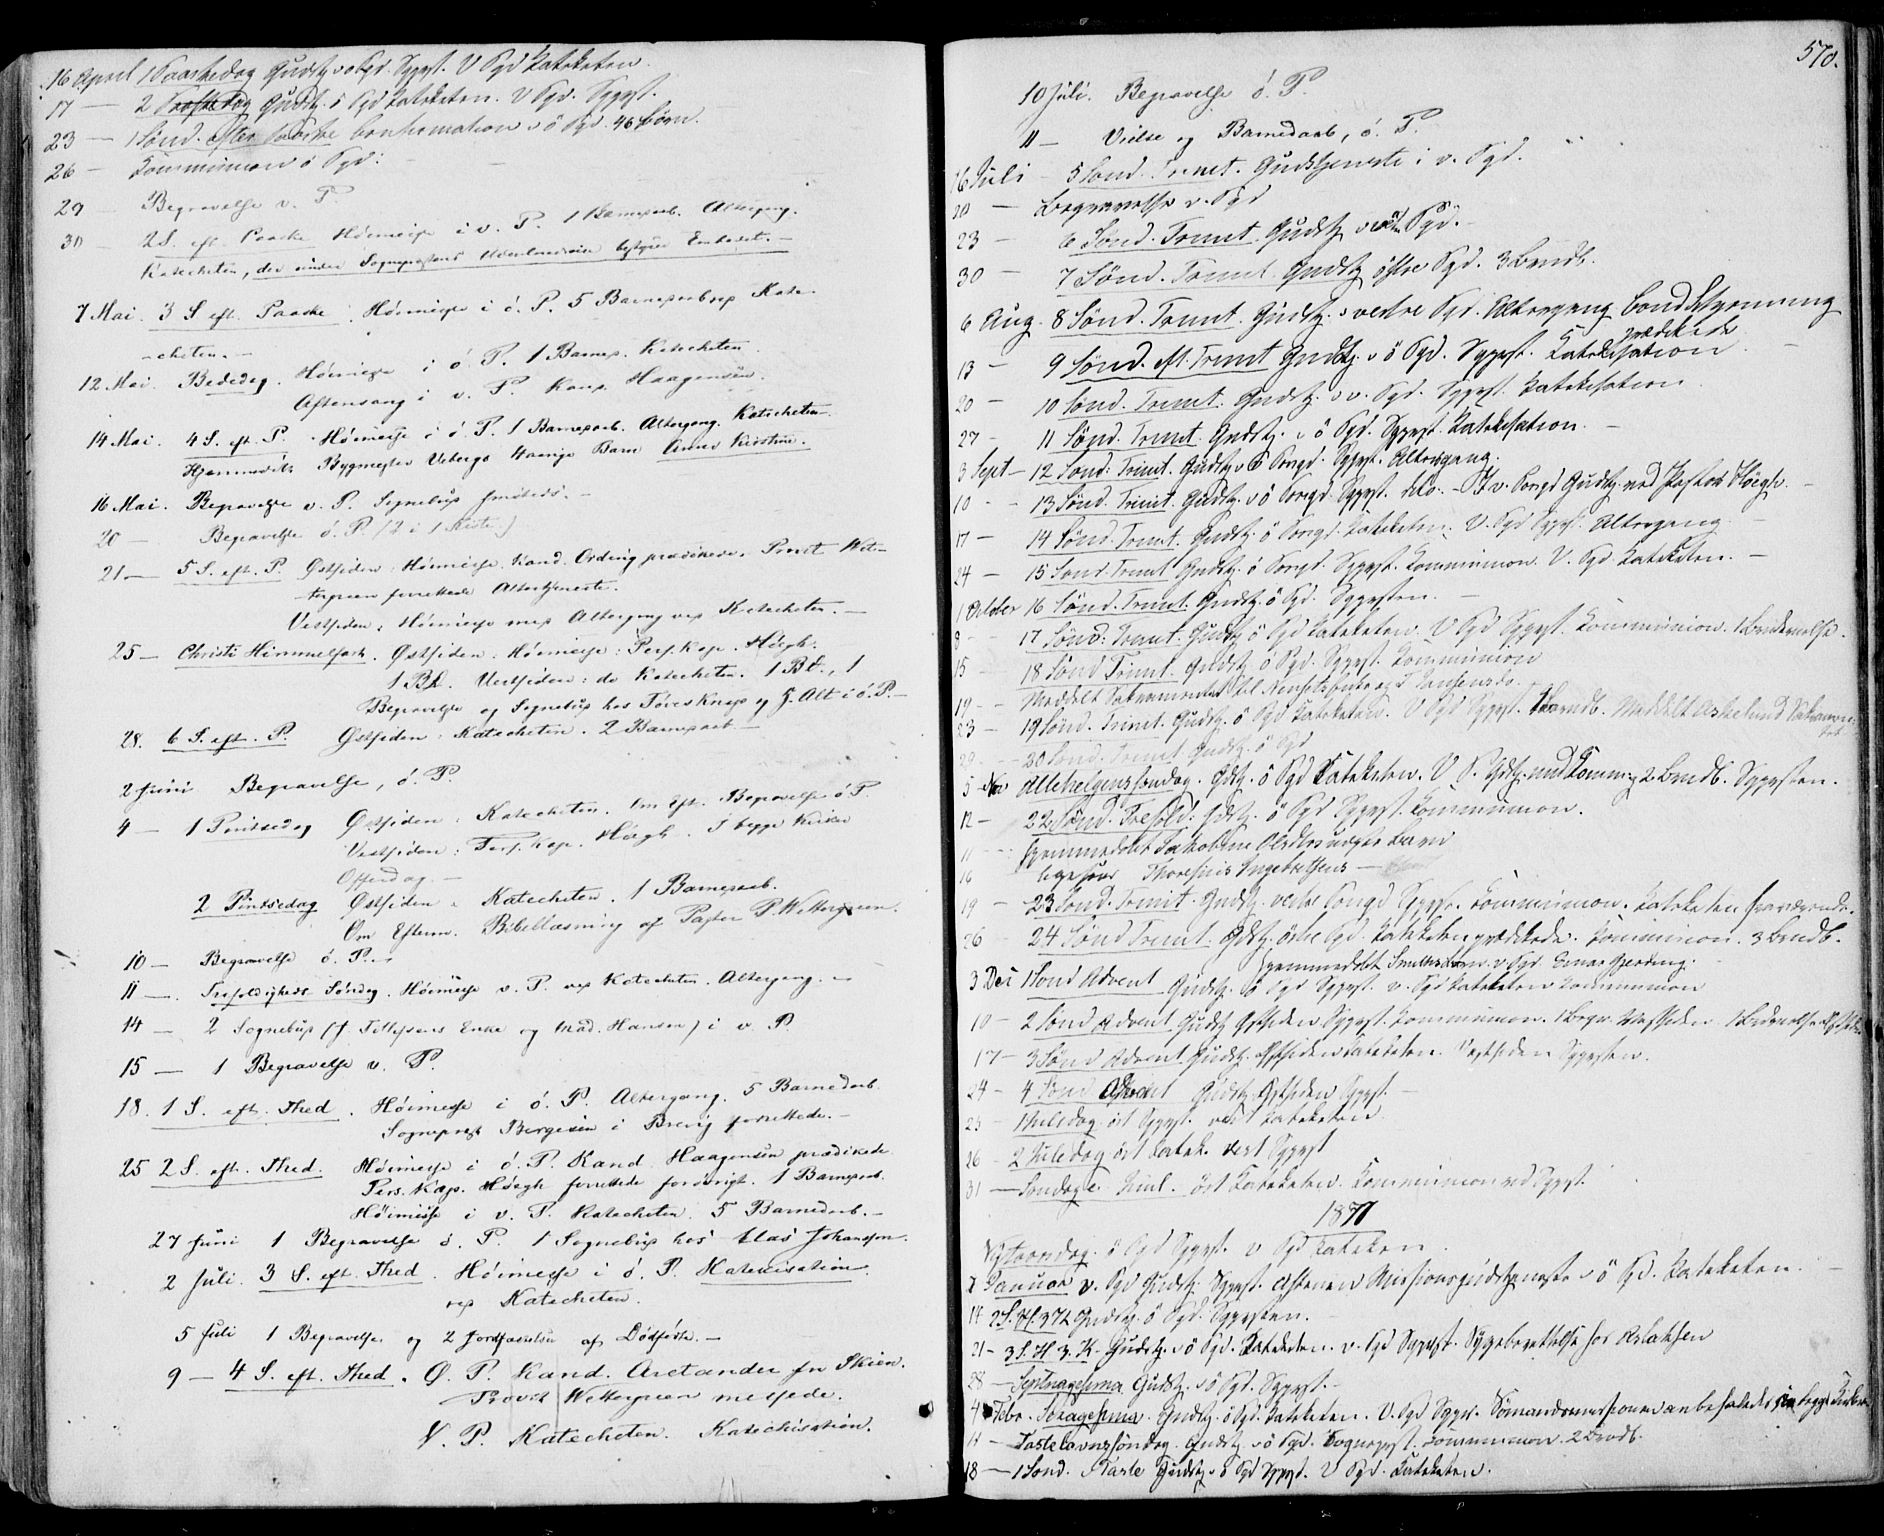 16 April 1 Paaskedag Gudstj. i ö Sgd. Sgprst. V Sgd Kateketen.
17 — 2 Paaskedag Gudstj. ö Sgd Katekten. V Sgd. Sgprst.
23 — 1 Sönd. efter Paaske Confirmation i ö Sgd. 46 Börn.
26 — Communion ö Sgd.
29 Begravelse v. P.
30 — 2 S. eft. Paaske Höimesse i v. P. 1 Barnedaab. Altergang.
Katecheten, der under Sognepræstens bestyrer Embedet. —
7 Mai. 3 S eft. Paaske. Höimesse i ö. P. 5 Barnedaab ved Kate-
cheten. —
12 Mai. Bededag. Höimesse i ö. P. 1 Barned. Katecheten
Aftensang i v. P. Kand. Haagensen.
14 Mai. 4 S. eft. P. Höimesse i ö. P. 1 Barnedaab. Altergang. Katecheten
Hjemmedöbt Bygmester Barn Anna Kirstine. —
16 Mai. Begravelse v. P. Sognebud —
20 — Begravelse ö. P. (2 i 1 Kiste.)
21 — 5 S. eft. P. Östsiden: Höimesse. Kand. Ording prædikede. Provst Wet-
tergreen forrettede Altertjeneste.
Vestsiden: Höimesse med Altergang ved Katecheten. —
25 — Christi Himmelfart. Östsiden: Höimesse: Pers. Kap. Höegh.
1 Bd. Vestsiden: do Katecheten. 1 Bd., 1
Begravelse og Sognebud hos i ö. P. —
28. 6 S. eft. P Östsiden: Katecheten. 2 Barnedaab —
2 Juni Begravelse, ö. P.
4 — 1 Pintsedag Östsiden: Katecheten. Om Eft. Begravelse ö P.
Vestsiden: Pers. Kap. Höegh. I begge Kirker
Offerdag. —
2 Pintsedag Östsiden: Katecheten. 1 Barnedaab.
Om Efterm. Bibellæsning af Pastor P. Wettergreen.
10 — Begravelse ö. P. —
11 —. Trefoldigheds Söndag. Höimesse v. P. ved Katecheten. Altergang. —
14 — 2 Sognebud (J. Tellefsens Enke og Mad. Hansen) i v. P.
15 — 1 Begravelse v. P.
18. 1 S. eft. Thed. Höimesse i ö. P. Altergang. 5 Barnedaab.
Sogneprest Börgesen i Brevig forrettede. —
25 2 S. eft. Thed. Höimesse i ö. P. Kand. Haagensen prædikede
Pers. Kap. Höegh forrettede forövrigt. 1 Barnedaab.
Höimesse i v. P. Katecheten. 5 Barnedaab. —
27 Juni 1 Begravelse ö. P. 1 Sognebud hos Elias Johansson.
2 Juli. 3 S. eft. Thed. Höimesse i ö. P. Katechisation
ved Katecheten.
5 Juli 1 Begravelse og 2 Jordfæstelser af Dödfödte. —
9 — 4 S. eft. Thed. Ö. P. Kand. Arctander fra Skien.
Provst Wettergreen messede.
V. P. Katecheten. Katechisation.
570.
10 Juli. Begravelse ö. P.
11 — Vielse og Barnedaab, ö. P.
16 Juli — 5 Sönd. Trinit. Gudstjeneste i v. Sgd.
20 — Begravelse v. Sgd
23 — 6 Sönd. Trinit. Gudstj. Sgd. —
30 — 7 Sönd. Trinit. Gudstj östre Sgd. 3 Barndb.
6 Aug. 8 Sönd. Trinit. Gudstj. i vestre Sgd. Altergang Cand Styrmung
prædikede
13 — 9 Sönd. eft. Trinit Gudstj. i ö Sgd. Sgprst. Katekisation. —
20 — 10 Sönd. Trinit. Gudstj. i v. Sgd. Sgprst. Katekisation
27 — 11 Sönd. Trinit. Gudstj. i ö Sgd. Sgprst. Katekisation. —
3 Sept — 12 Sönd. Trinit. Gudstj i ö Sogd. Sgprst. Altergang.
10 — 13 Sönd. Trinit. Gudstj. i ö Sogd. Sgprst. — I v. Sogd Gudstj. ved Pastor Höegh. —
17 — 14 Sönd. Trinit. Gudstj. ö Sogd. Katekten. V. Sgd Sgprst. Altergang. —
24 — 15 Sönd. Trinit Gudstj. ö Sogd. Sgprst. Kommunion. V. Sgd Katekten. —
1 Oktober 16 Sönd. Trinit. Gudstj. ö Sgd. Sgprsten. —
8 — 17 Sönd. Trinit. Gudstj ö Sgd Katekten. V Sgd Sgprst. Kommunion. 1 Begravelse.
15 18 Sönd Trinit. Gudstj. ö Sgd. Sgprst. Kommunion
19 — Meddelt Sakramentet til
23 — 19 Sönd. Trinit. Gudstj. ö Sgd Katekten. V Sgd Sgprst. Barndb. Meddelt Sakramen-
tet
29. — 20 Sönd. Trinit Gudstj. ö Sgd
5 Nov Allehelgenssöndag. Gdstj. ö Sgd Katekten. V S. Gdstj. med Komm. og 2 Barndb. Sgprsten.
12 — 22 Sönd. Trefold: Gdstj. ö Sgd Sgprst. Kommunion.
11 — Hjemmedöbt Barn
16 ligesaa Ingebretsens —
19 — 23 Sönd. Trinit. Gudstj. vestre Sogd Sgprst. Kommunion. Kateketen fraværende.
26 24 Sönd Trinit. Gdstj. östre Sgd. Katekten prædikede. Kommunion. 3 Barndb.
Hjemmedöbt v. Sgd.
3 Dec 1 Sönd Advent Gudstj. ö Sgd Sgprst. v. Sgd Katekten Kommunion
10 — 2 Sönd Advent Gudstj Östsiden Sgprst. Kommunion. 1 Begr. Vestsiden 1 Begravelse Östsiden
17 — 3 Sönd Advent Gudstj. Östsiden Katekten. Vestsiden Sgprsten.
24 — 4 Sönd Advent Gudstj. Östsiden Sgprst. —
25 — 1 Juledag öst Sgprst. vest Katekten
26 — 2 Juledag öst Katek. vest Sgprst
31 — Söndag e. Juul. öst Kateketen. Kommunion ved Sgprst.
1871
Nytaarsdag. ö Sgd Sgprst. v Sgd Kateketen.
7 Januar v. Sgd Gudstj. Sgprst. Aftenen Missionsgudstjeneste i ö Sgd. Kateketen. —
14 2 S. H. 3 K Gudstj. ö Sgd. Sgprsten.
21 — 3 S. H. 3. K. Gudstj. i ö Sgd. Katekten. v. Sgd Sgprst. Sygeberettelse hos Aslaksen
28 — Septuagesima Gudstj. i ö Sgd. Sgprst. —
4 Febr. Sexagesima. Gudstj. ö Sgd. Katekten. V. Sgd Sgprst. Sömandsmissionen anbefaledes i begge Kirker
11 — Fastelavnssöndag. Gudstj. i ö Sgd. Sogneprst. Kommunion. 2 Barndb.
18 — 1 Sönd. i Faste Gudstj. i ö Sgd Sgprst. V Sgd. Katekten.